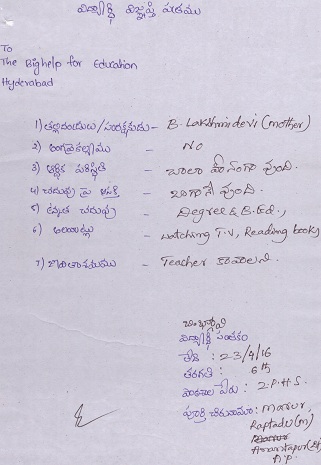 విద్యార్థి విజ్ఞప్తి పత్రము
To
The Bighelp for Education
Hyderabad
1) తల్లిదండ్రులు/సంరక్షకుడు - B. Lakshmidevi (mother)
2) అంగవైకల్యము - No
3) ఆర్థిక పరిస్థితి - చాలా హీనంగా వుంది.
4) చదువు పై ఆసక్తి - బాగానే వుంది.
5) ఉన్నత చదువు - Degree & B.Ed.,
6) అలవాట్లు - watching T.V, Reading books
7) జీవితాశయము - Teacher కావాలని.
విద్యార్థి సంతకం
తేది : 23/4/16
తరగతి : 6th
పాఠశాల పేరు : Z.P.H.S.
పూర్తి చిరునామా : Marur,
Raptadu (M)
Anantapur
A.P.